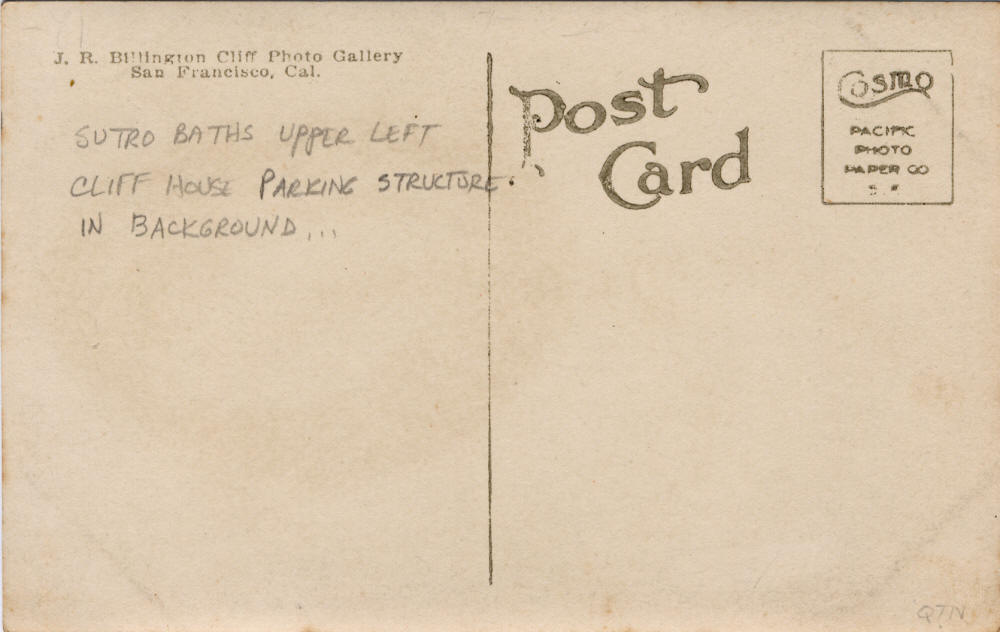 J. R. Billington Cliff Photo Gallery
San Francisco, Cal.
SUTRO BATHS UPPER LEFT
CLIFF HOUSE PARKING STRUCTURE
IN BACKGROUND...
Post
Card
COSMO
PACIFIC
PHOTO
PAPER CO
S. F.
QTN